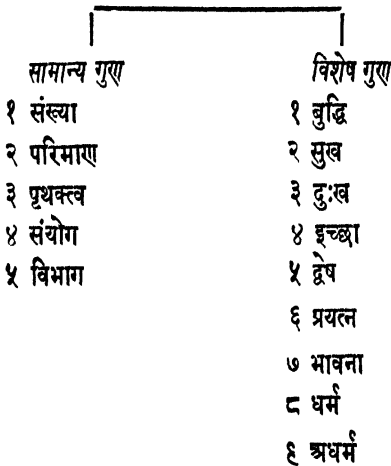 सामान्य गुण
१ संख्या
२ परिमाण
३ पृथक्त्व
४ संयोग
५ विभाग
विशेष गुण
१ बुद्धि
२ सुख
३ दुःख
४ इच्छा
५ द्वेष
६ प्रयत्न
७ भावना
८ धर्म
९ अधर्म